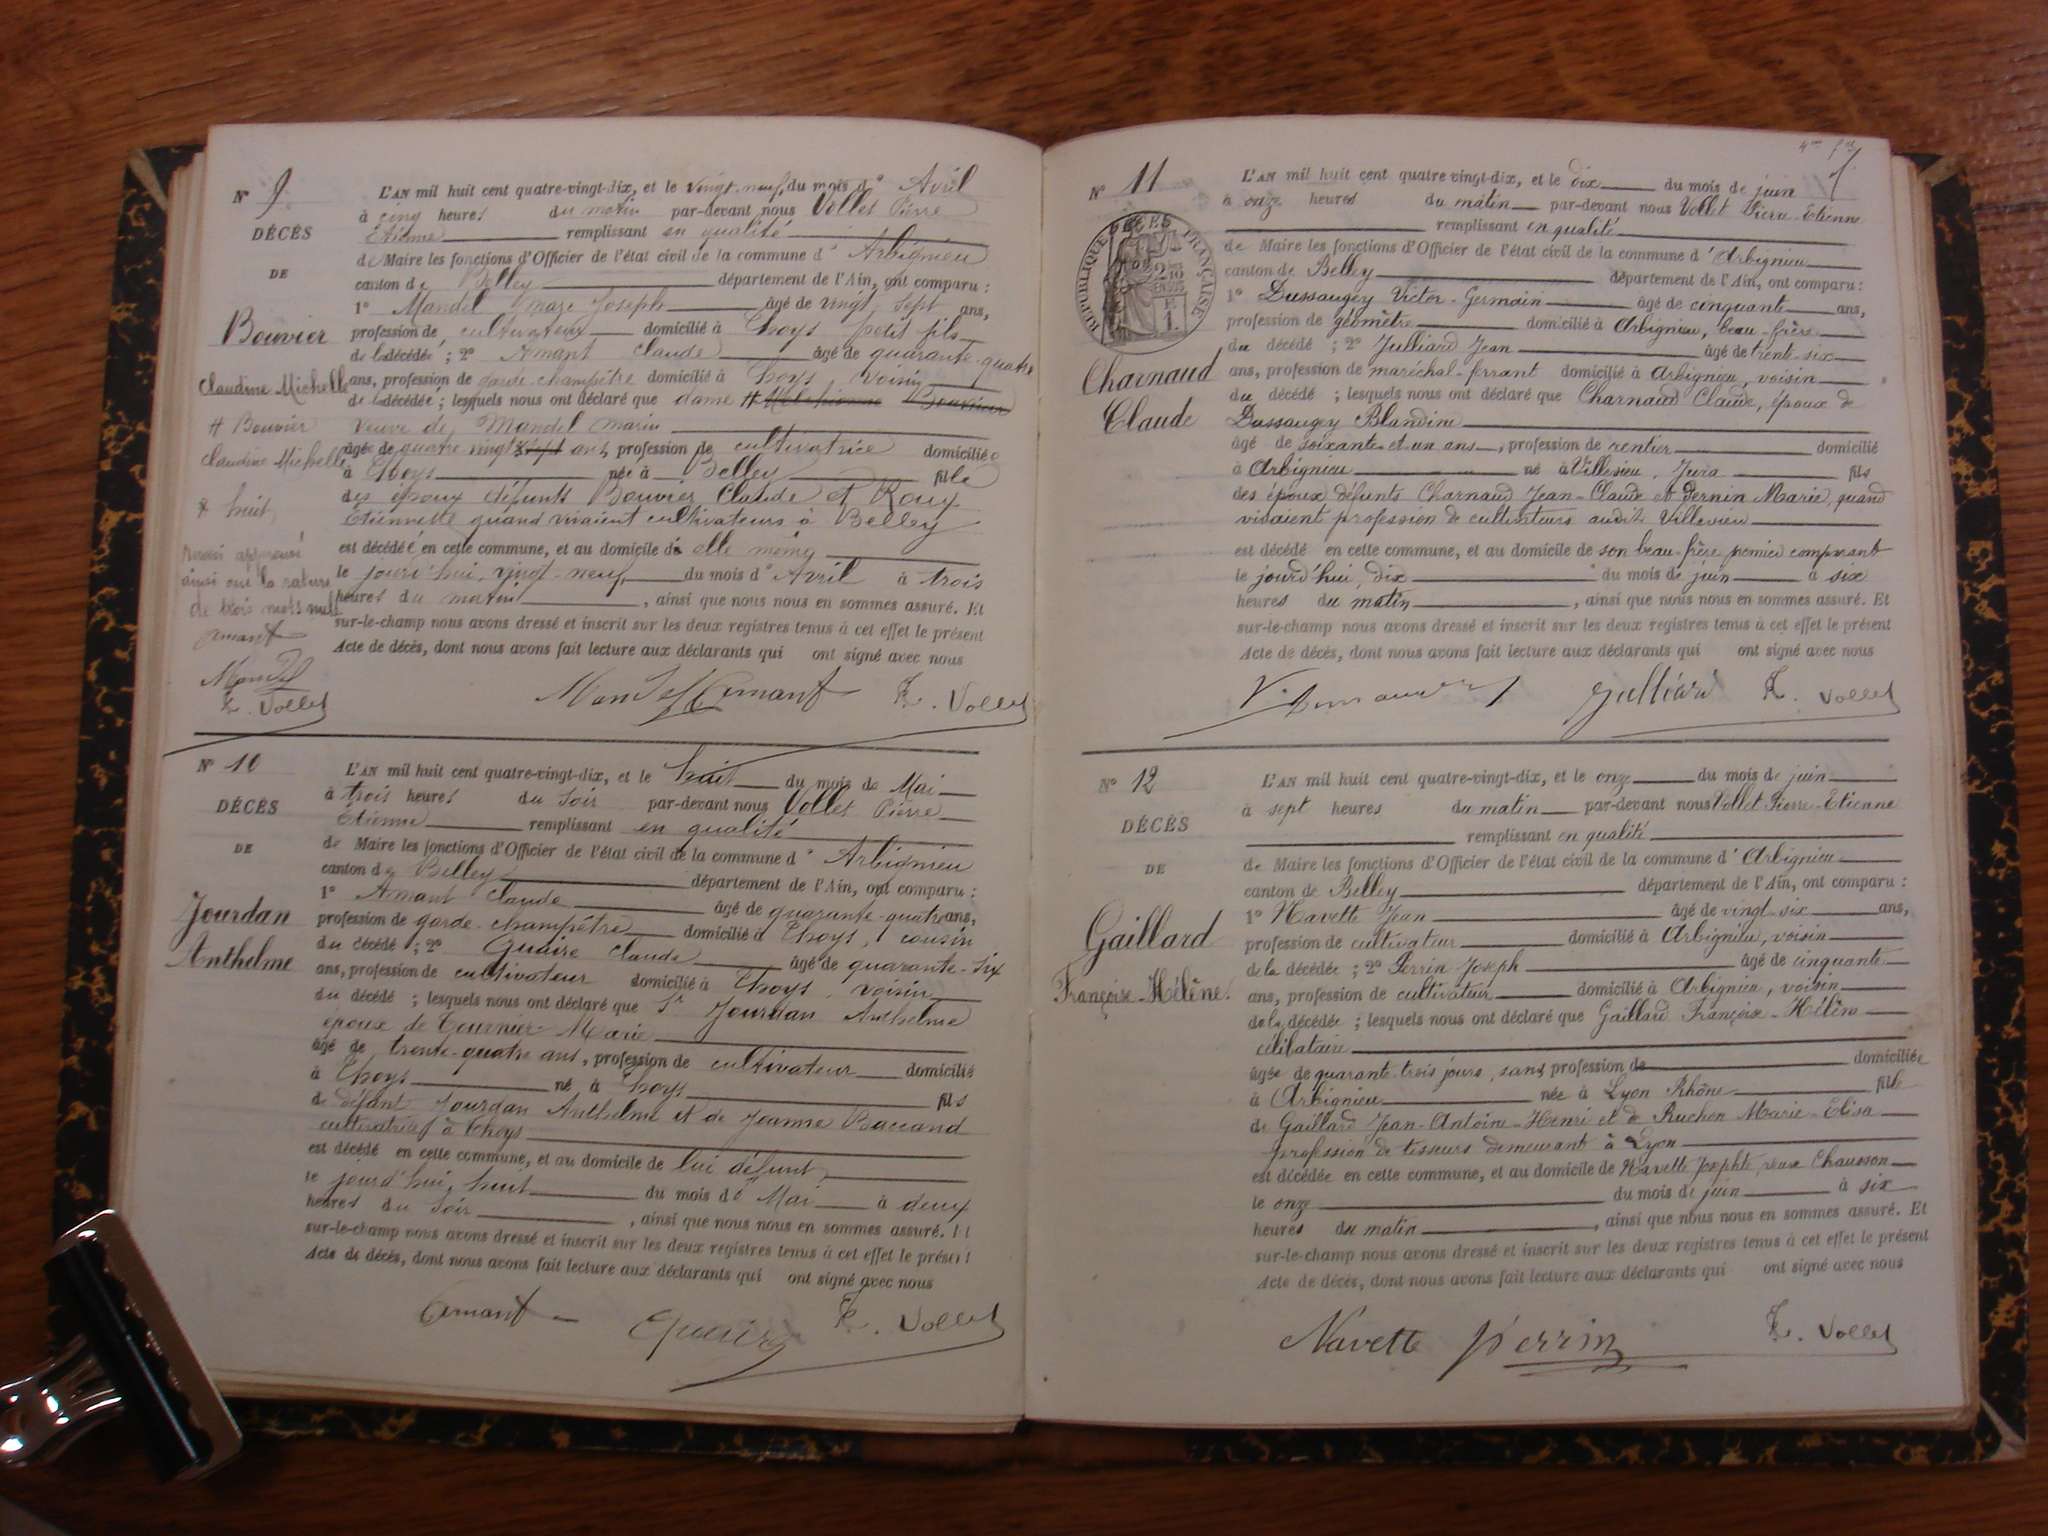 N° 9
DÉCÈS
DE
Bouvier
Claudine Michelle
# Bouvier
Claudine Michelle
* huit,
Renvoi approuvé
ainsi que la rature
de trois mots nuls
Amant
Mandel
E. Vollet
L'AN mil huit cent quatre-vingt-dix, et le vingt-neuf, du mois d' Avril
à cinq heures du matin par-devant nous Vollet Pierre
Etienne remplissant en qualité
de Maire les fonctions d'Officier de l'état civil de la commune d' Arbignieu
canton de Belley département de l'Ain, ont comparu :
1° Mandel Marc Joseph âgé de vingt sept ans,
profession de cultivateur domicilié à Thoys petit fils
de la décédée ; 2° Amant Claude âgé de quarante-quatre
ans, profession de garde-champêtre domicilié à Thoys, voisin
de la décédée ; lesquels nous ont déclaré que dame # Bouvier
veuve de Mandel Marin
âgée de quatre vingt * sept ans, profession de cultivatrice domiciliée
à Thoys née à Belley fille
des époux défunts Bouvier Claude et Roux
Etiennette quand vivaient cultivateurs à Belley
est décédée en cette commune, et au domicile d' elle même
le jourd'hui, vingt-neuf du mois d' Avril à trois
heures du matin, ainsi que nous nous en sommes assuré. Et
sur-le-champ nous avons dressé et inscrit sur les deux registres tenus à cet effet le présent
Acte de décès, dont nous avons fait lecture aux déclarants qui ont signé avec nous
Mandel Amant E. Vollet
N° 10
DÉCÈS
DE
Jourdan
Anthelme
L'AN mil huit cent quatre-vingt-dix, et le huit du mois de Mai
à trois heures du soir par-devant nous Vollet Pierre
Etienne remplissant en qualité
de Maire les fonctions d'Officier de l'état civil de la commune d' Arbignieu
canton de Belley département de l'Ain, ont comparu :
1° Amant Claude âgé de quarante-quatre ans,
profession de garde-champêtre domicilié à Thoys, cousin
du décédé ; 2° Quaire Claude âgé de quarante-six
ans, profession de cultivateur domicilié à Thoys, voisin
du décédé ; lesquels nous ont déclaré que Sr Jourdan Anthelme
époux de Tournier Marie
âgé de trente-quatre ans, profession de cultivateur domicilié
à Thoys né à Thoys fils
de défunt Jourdan Anthelme et de Jeanne Baccand
cultivatrice à Thoys
est décédé en cette commune, et au domicile de lui défunt
le jourd'hui, huit du mois de Mai à deux
heures du soir, ainsi que nous nous en sommes assuré. Et
sur-le-champ nous avons dressé et inscrit sur les deux registres tenus à cet effet le présent
Acte de décès, dont nous avons fait lecture aux déclarants qui ont signé avec nous
Amant E. Vollet
N° 11
RÉPUBLIQUE FRANÇAISE
Charnaud
Claude
L'AN mil huit cent quatre-vingt-dix, et le dix du mois de juin
à onze heures du matin par-devant nous Vollet Pierre-Etienne
remplissant en qualité
de Maire les fonctions d'Officier de l'état civil de la commune d' Arbignieu
canton de Belley département de l'Ain, ont comparu :
1° Dussaugey Victor-Germain âgé de cinquante ans,
profession de géomètre domicilié à Arbignieu, beau-frère
du décédé ; 2° Julliard Jean âgé de trente-six
ans, profession de maréchal-ferrant domicilié à Arbignieu, voisin
du décédé ; lesquels nous ont déclaré que Charnaud Claude, époux de
Dussaugey Blandine
âgé de soixante et un ans, profession de rentier domicilié
à Arbignieu né à Villevieu, Jura fils
des époux défunts Charnaud Jean-Claude et Pernin Marie, quand
vivaient profession de cultivateurs audit Villevieu
est décédé en cette commune, et au domicile de son beau-frère premier comparant
le jourd'hui, dix du mois de juin à six
heures du matin, ainsi que nous nous en sommes assuré. Et
sur-le-champ nous avons dressé et inscrit sur les deux registres tenus à cet effet le présent
Acte de décès, dont nous avons fait lecture aux déclarants qui ont signé avec nous
Julliard E. Vollet
N° 12
DÉCÈS
DE
Gaillard
Françoise-Hélène.
L'AN mil huit cent quatre-vingt-dix, et le onze du mois de juin
à sept heures du matin par-devant nous Vollet Pierre-Etienne
remplissant en qualité
de Maire les fonctions d'Officier de l'état civil de la commune d' Arbignieu
canton de Belley département de l'Ain, ont comparu :
1° Navette Jean âgé de vingt-six ans,
profession de cultivateur domicilié à Arbignieu, voisin
de la décédée ; 2° Perrin Joseph âgé de cinquante
ans, profession de cultivateur domicilié à Arbignieu, voisin
de la décédée ; lesquels nous ont déclaré que Gaillard Françoise-Hélène
célibataire
âgée de quarante-trois jours, sans profession de domiciliée
à Arbignieu née à Lyon Rhône fille
de Gaillard Jean-Antoine-Henri et de Ruchon Marie-Elisa
profession de tisseurs demeurant à Lyon
est décédée en cette commune, et au domicile de Navette Josephte, veuve Chausson
le onze du mois de juin à six
heures du matin, ainsi que nous nous en sommes assuré. Et
sur-le-champ nous avons dressé et inscrit sur les deux registres tenus à cet effet le présent
Acte de décès, dont nous avons fait lecture aux déclarants qui ont signé avec nous
Navette Perrin E. Vollet